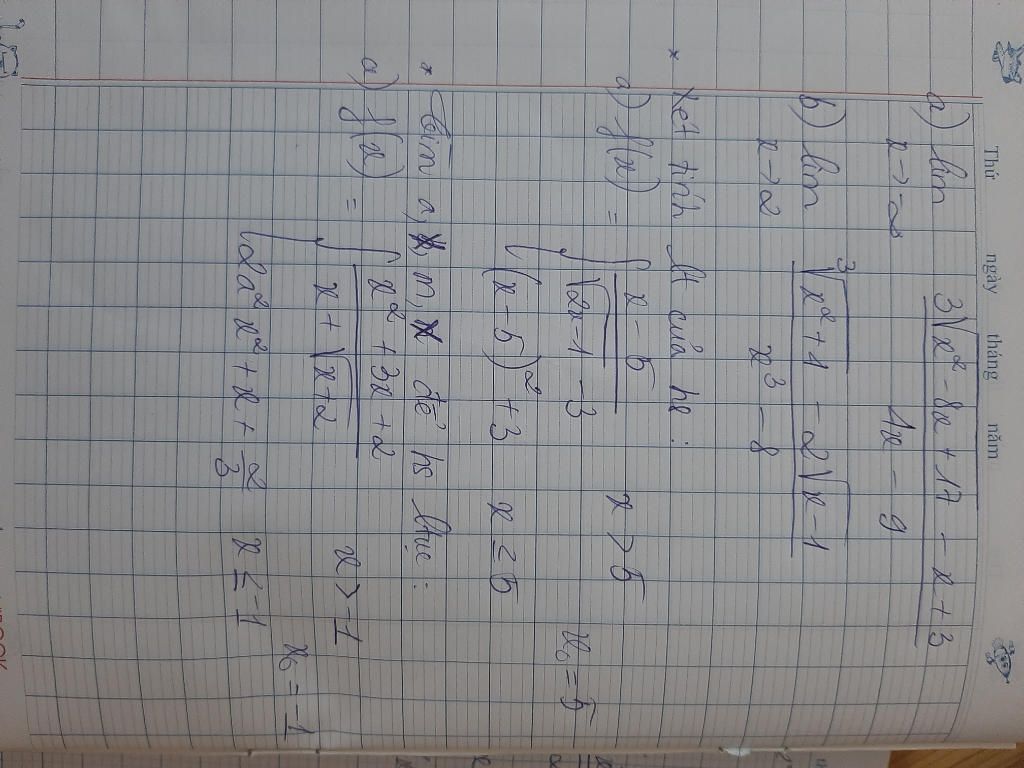 Thứ ngày tháng năm
a) lim x→-∞ (3√(x² - 8x + 17) - x + 3) / (4x - 9)
b) lim x→2 (³√(x² + 1) - 2√(x - 1)) / (x³ - 8)
* Xét tính lt của hs:
a) f(x) = { (x - 5) / (√(2x - 1) - 3) x > 5
(x - 5)² + 3 x ≤ 5 x₀ = 5
* Tìm a, m, để hs ltục:
a) f(x) = { (x² + 3x + 2) / (x + √(x + 2)) x > -1
2a²x² + x + 2/3 x ≤ -1 x₀ = -1